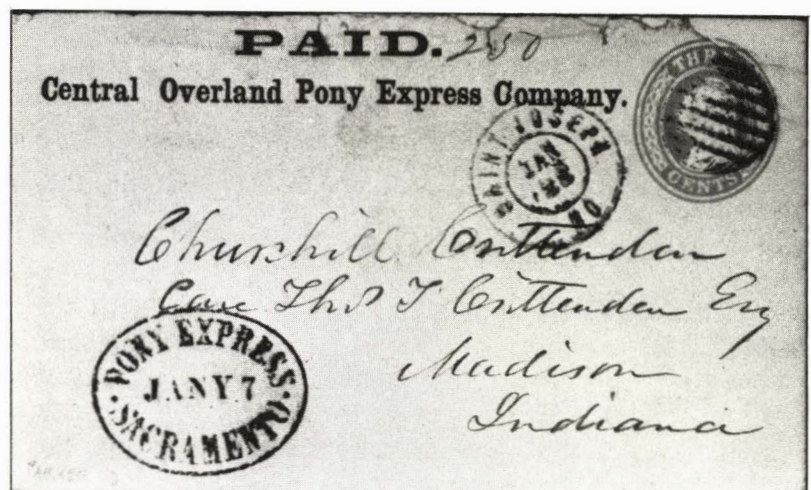 PAID. 250
Central Overland Pony Express Company.
THREE
CENTS
SAINT JOSEPH
JAN
MO
Churchill Crittenden
Care Thos T Crittenden Esq
Madison
Indiana
PONY EXPRESS
JANY 7
SACRAMENTO